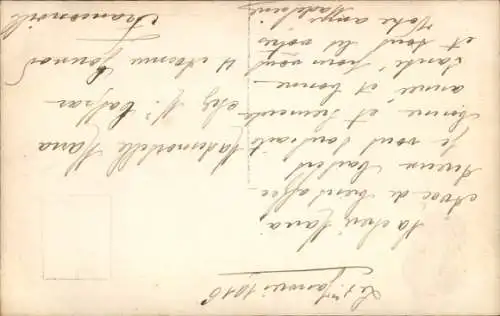 Le 1er Janvier 1916
Ma chère Maria
Avec de bien affec
tueux baisers
je vous souhaite
bonne et heureuse
année, et bonne
santé, à vous
et tous les vôtres
Votre amie
Madeleine
Mademoiselle Maria
chez Mr
4 avenue
Franconville